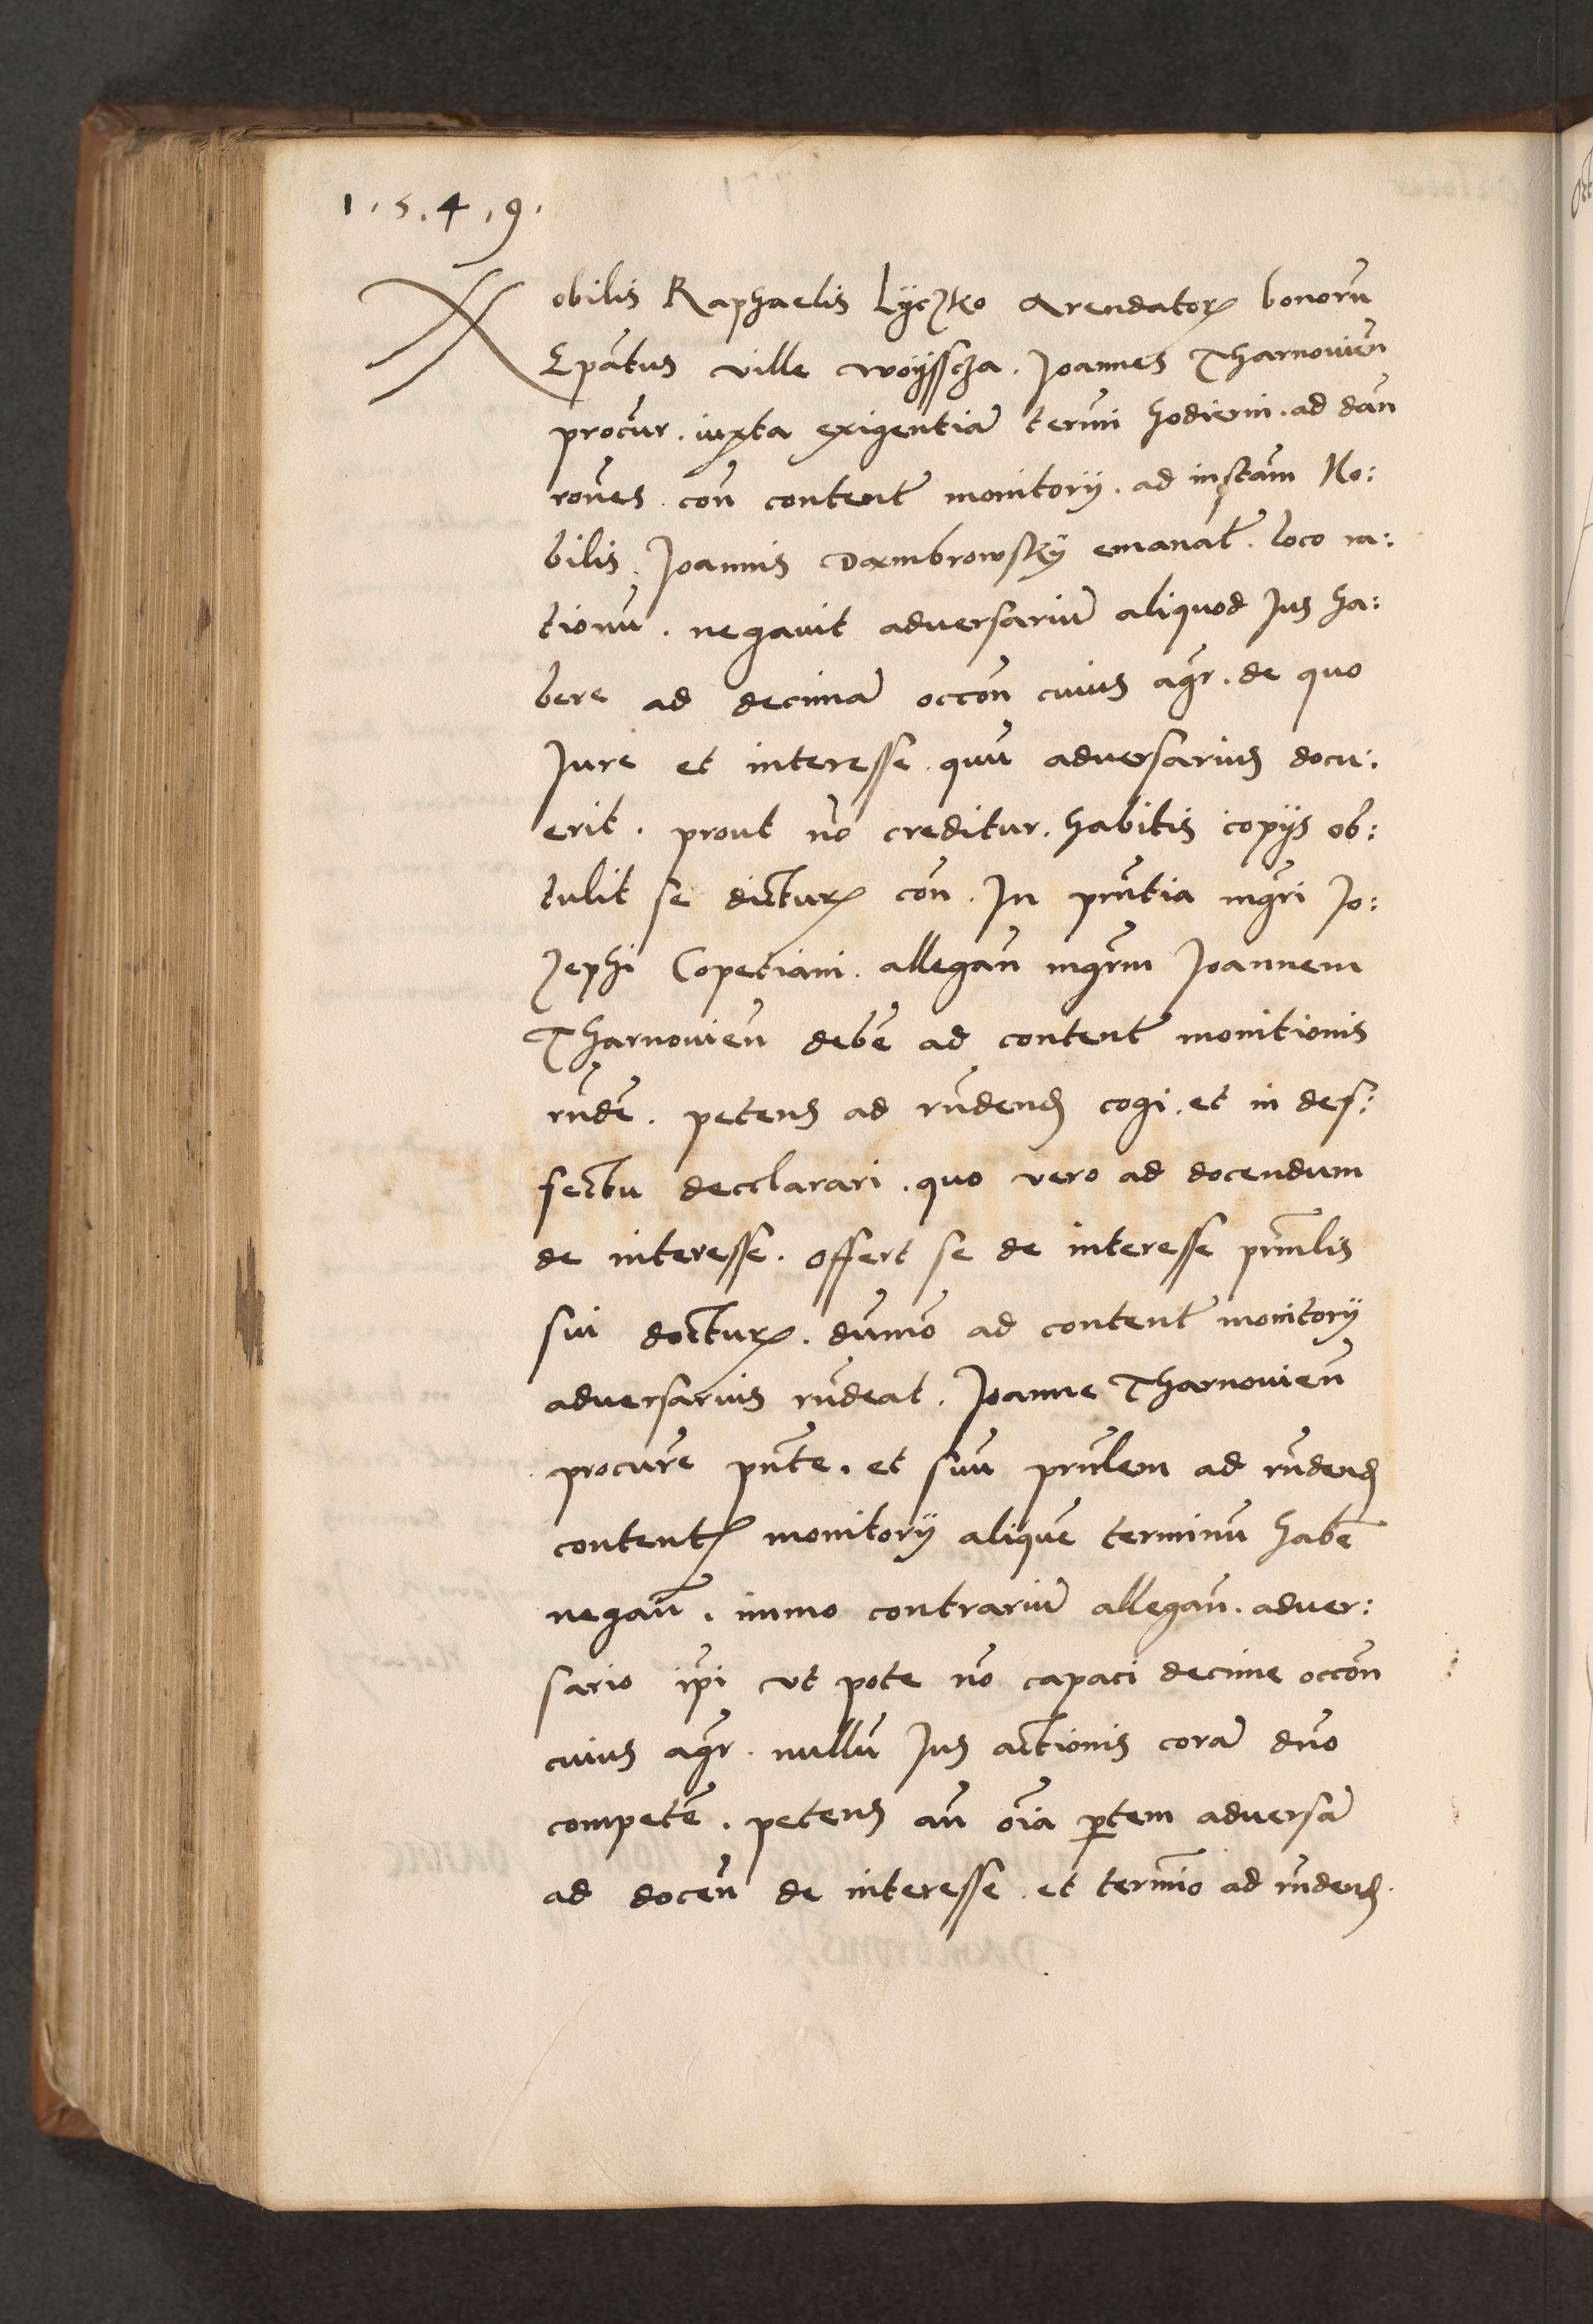 1.5.4.9.
Nobilis Raphaelis Lÿczko Arendatoꝝ bonorū
Epātus ville Woÿssza. Joannes Tharnovieñ
procūr. iuxta exigentiā termī hodierni. ad dañ
roñes. coñ content̄ monitorÿ. ad instām No:
bilis. Joannis Dambrowskÿ emanat̄. loco ra:
tionū. negavit adversariū aliquod Jus ha:
bere ad decimā occoñ cuius agr̄. de quo
Jure et interesse. quū adversarius docu:
erit. prout nō creditur. habitis copÿs ob:
tulit se dictuꝝ coñ. In pñtia mgr̄i Jo:
zephi Copeciani. allegañ mgr̄m Joannem
Tharnovieñ debē ad content̄ monitionis
rñdē. petens ad rñdend cogi. et in def:
fectu decclarari. quo vero ad docendum
de interesse. offert se de interesse prin̄lis
sui doctuꝝ. dūmō ad content̄ monitorÿ
adversarius rñdeat. Joanne Tharnovieñ
procurē pñte. et suū prin̄lem ad rñdend
contentꝝ monitorÿ aliquē terminū habē
negañ. immo contrariū allegañ. adver:
sario ip̄i ut pote nō capaci decime occoñ
cuius agr̄. nullū Jus actionis corā dño
competē. petens añ oīa ꝑtem adversā
ad doceñ de interesse. et termīo ad rñdend.